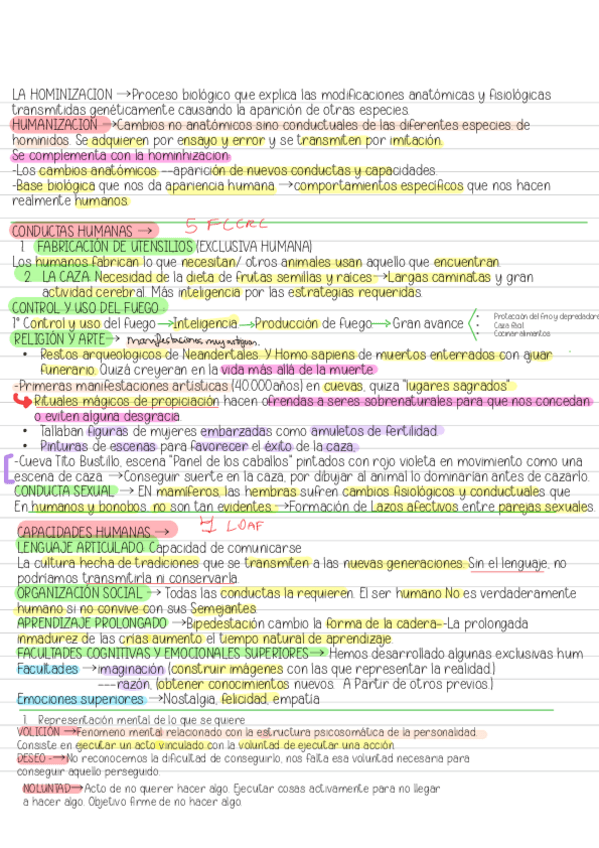 LA HOMINIZACION →Proceso biológico que explica las modificaciones anatómicas y fisiológicas
transmitidas genéticamente causando la aparición de otras especies.
HUMANIZACIÓN →Cambios no anatómicos sino conductuales de las diferentes especies de
hominidos. Se adquieren por ensayo y error y se transmiten por imitación.
Se complementa con la hominhizacion
-Los cambios anatómicos --aparición de nuevos conductas y capacidades.
-Base biológica que nos da apariencia humana →comportamientos específicos que nos hacen
realmente humanos.
CONDUCTAS HUMANAS → 5 FCCRC
1. FABRICACIÓN DE UTENSILIOS (EXCLUSIVA HUMANA)
Los humanos fabrican lo que necesitan/ otros animales usan aquello que encuentran
2. LA CAZA. Necesidad de la dieta de frutas semillas y raíces→Largas caminatas y gran
actividad cerebral. Más inteligencia por las estrategias requeridas.
CONTROL Y USO DEL FUEGO
1º Control y uso del fuego→Inteligencia→Producción de fuego→Gran avance
• Protección del frio y depredadores
• Caza
• Cocinar alimentos
RELIGIÓN Y ARTE→ manifestaciones muy antiguas.
• Restos arqueologicos de Neandertales. Y Homo sapiens de muertos enterrados con ajuar
funerario. Quizá creyeran en la vida más allá de la muerte
-Primeras manifestaciones artísticas (40.000años) en cuevas, quiza "lugares sagrados"
Rituales mágicos de propiciación hacen ofrendas a seres sobrenaturales para que nos concedan
o eviten alguna desgracia
• Tallaban figuras de mujeres embarzadas como amuletos de fertilidad.
• Pinturas de escenas para favorecer el éxito de la caza,
-Cueva Tito Bustillo, escena "Panel de los caballos" pintados con rojo violeta en movimiento como una
escena de caza →Conseguir suerte en la caza, por dibujar al animal lo dominarían antes de cazarlo.
CONDUCTA SEXUAL → EN mamíferos, las hembras sufren cambios fisiológicos y conductuales que
En humanos y bonobos, no son tan evidentes →Formación de Lazos afectivos entre parejas sexuales.
CAPACIDADES HUMANAS → 4 LOAF
LENGUAJE ARTICULADO Capacidad de comunicarse
La cultura hecha de tradiciones que se transmiten a las nuevas generaciones. Sin el lenguaje, no
podríamos transmitirla ni conservarla.
ORGANIZACIÓN SOCIAL → Todas las conductas la requieren. El ser humano No es verdaderamente
humano si no convive con sus Semejantes.
APRENDIZAJE PROLONGADO →Bipedestación cambio la forma de la cadera--La prolongada
inmadurez de las crías aumento el tiempo natural de aprendizaje.
FACULTADES COGNITIVAS Y EMOCIONALES SUPERIORES→ Hemos desarrollado algunas exclusivas hum
Facultades →imaginación (construir imágenes con las que representar la realidad.)
---razón, (obtener conocimientos nuevos. A Partir de otros previos.)
Emociones superiores →Nostalgia, felicidad, empatia
1. Representación mental de lo que se quiere
VOLICIÓN →Fenomeno mental relacionado con la estructura psicosomática de la personalidad.
Consiste en ejecutar un acto vinculado con la voluntad de ejecutar una acción
DESEO -→No reconocemos la dificultad de conseguirlo, nos falta esa voluntad necesaria para
conseguir aquello perseguido.
NOLUNTAD→Acto de no querer hacer algo. Ejecutar cosas activamente para no llegar
a hacer algo. Objetivo firme de no hacer algo